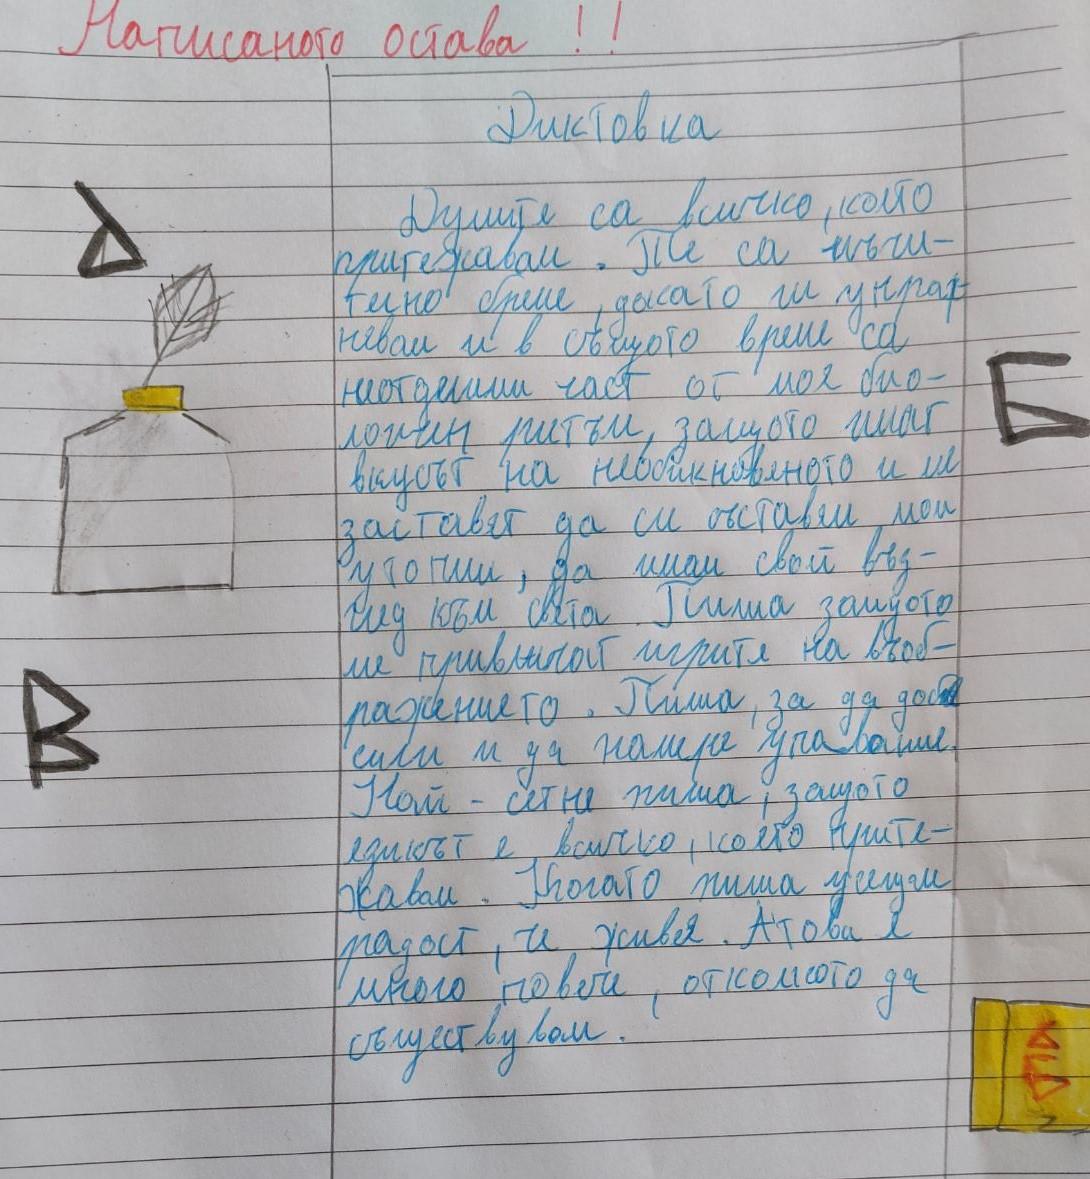 Написаното остава !!
Диктовка
Думите са всичко, което
притежавам. Те са мъчи-
телно бреме, докато ги упраж-
нявам и в същото време са
неотделими част от моя био-
логичен ритъм, защото имат
вкусът на необикновеното и ме
заставят да си съставям мои
утопии, да имам свой въз-
глед към света. Пиша защото
ме привличат игрите на въоб-
ражението. Пиша, за да
сили и да намеря упование.
Най-сетне пиша, защото
езикът е всичко, което прите-
жавам. Когато пиша усещам
радост, че живея. А това е
много повече, отколкото да
съществувам.
А
Б
В